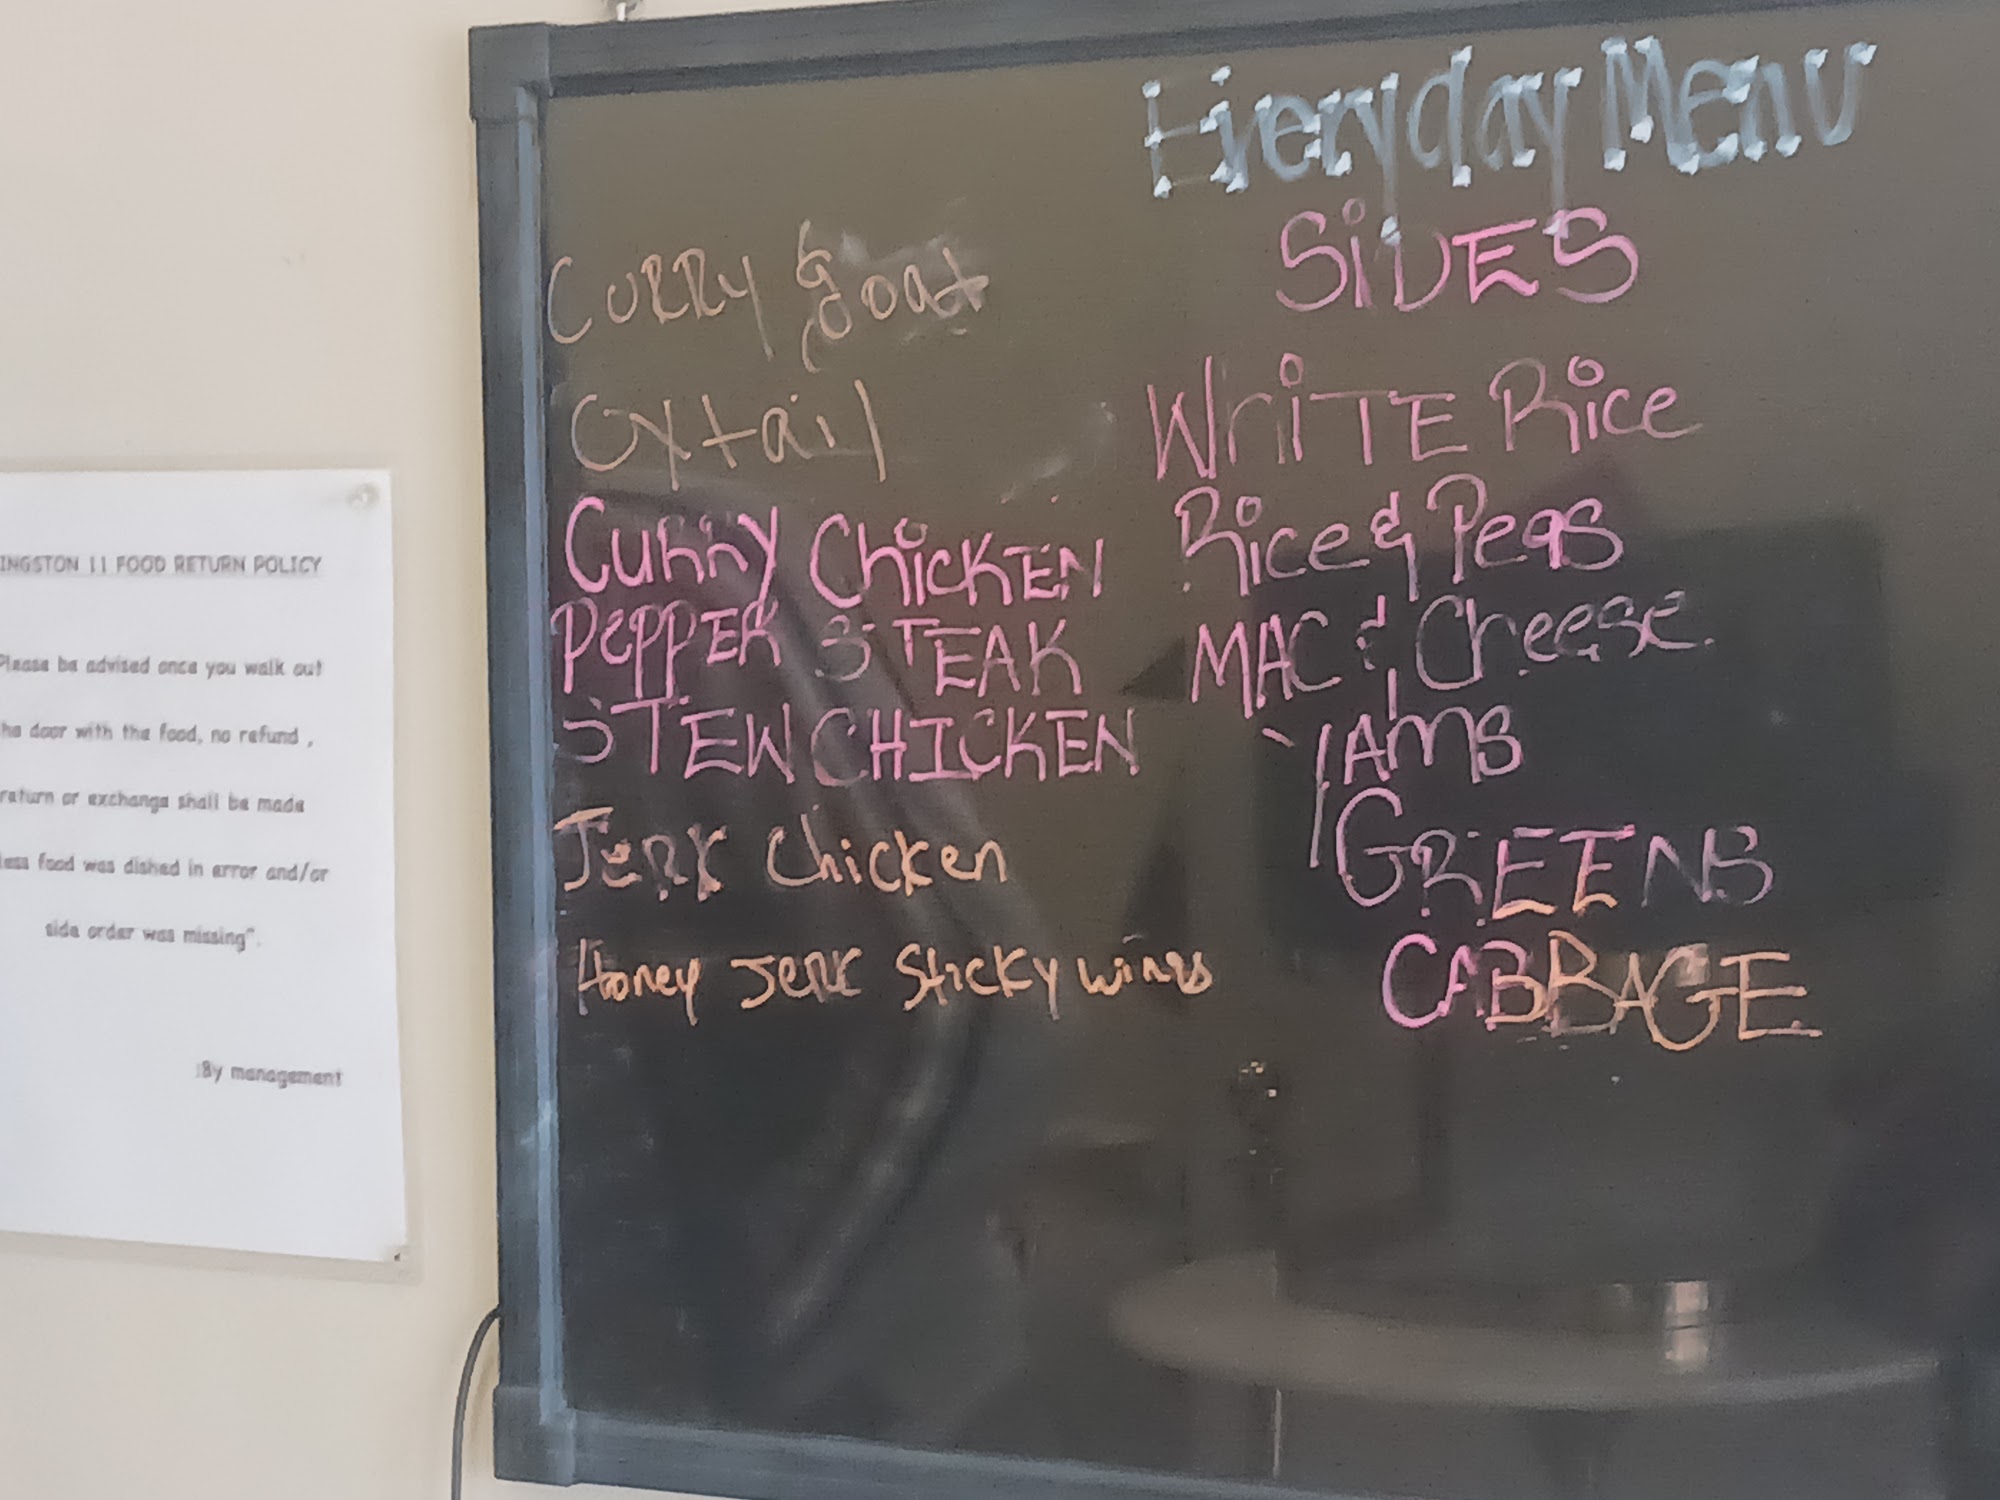 INGSTON 11 FOOD RETURN POLICY
Please be advised once you walk out
door with the food, no refund ,
return or exchange shall be made
food was dished in error and/or
side order was missing".
By management
Everyday Menu
Curry goat
Oxtail
Curry Chicken
PePPER STEAK
STEW CHICKEN
JeRK Chicken
Honey Jerk Sticky wings
SiDES
WhiTE Rice
Rice & Peas
MAC & Cheese
YAMS
GREENS
CABBAGE